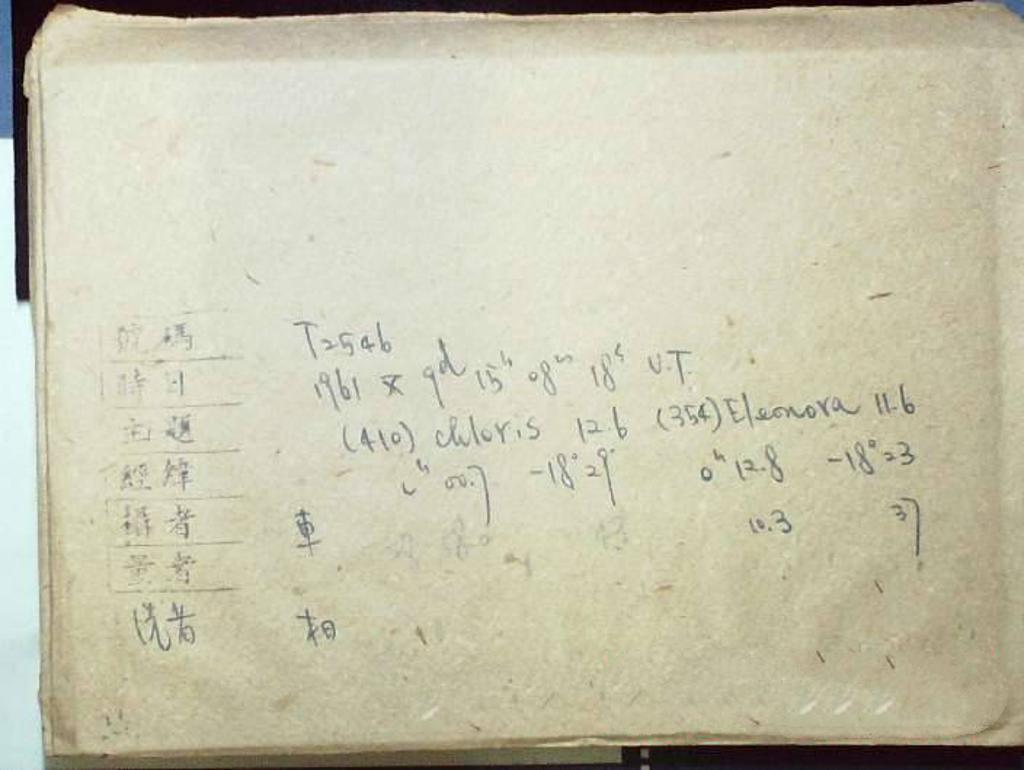 號碼 T2546
時日 1961 X 9d 15h 08m 18s U.T.
主題 (410) chloris 12.6 (354) Eleonora 11.6
經緯 00.7 -18°29' 0h 12.8 -18°23
攝者 車 10.3 37
量者
洗者 相